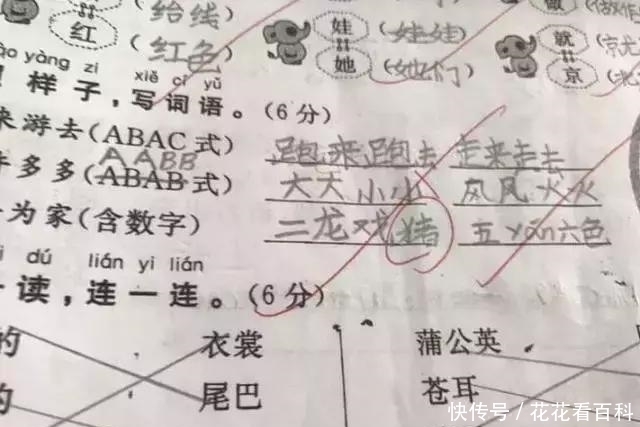 给线 娃 娃娃 做
红 (红色) 她 (她们) 就 京
yàng zi xiě cí yǔ
样子，写词语。(6分)
来游去(ABAC式) 跑来跑去 走来走去
AABB
许多多(ABAB式) 大大小小 风风火火
为家(含数字) 二龙戏猪 五yán六色
dú lián yi lián
读，连一连。(6分)
的 衣裳 蒲公英
的 尾巴 苍耳
快传号/花花看百科